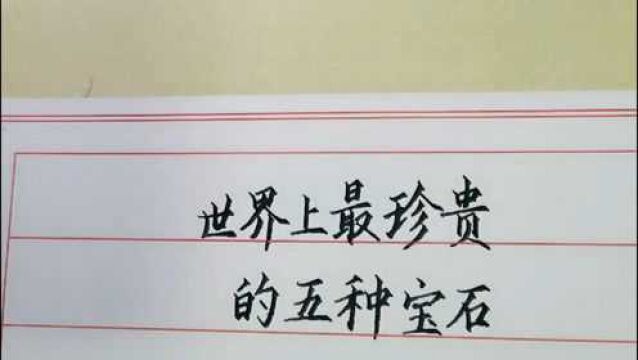 世界上最珍贵
的五种宝石